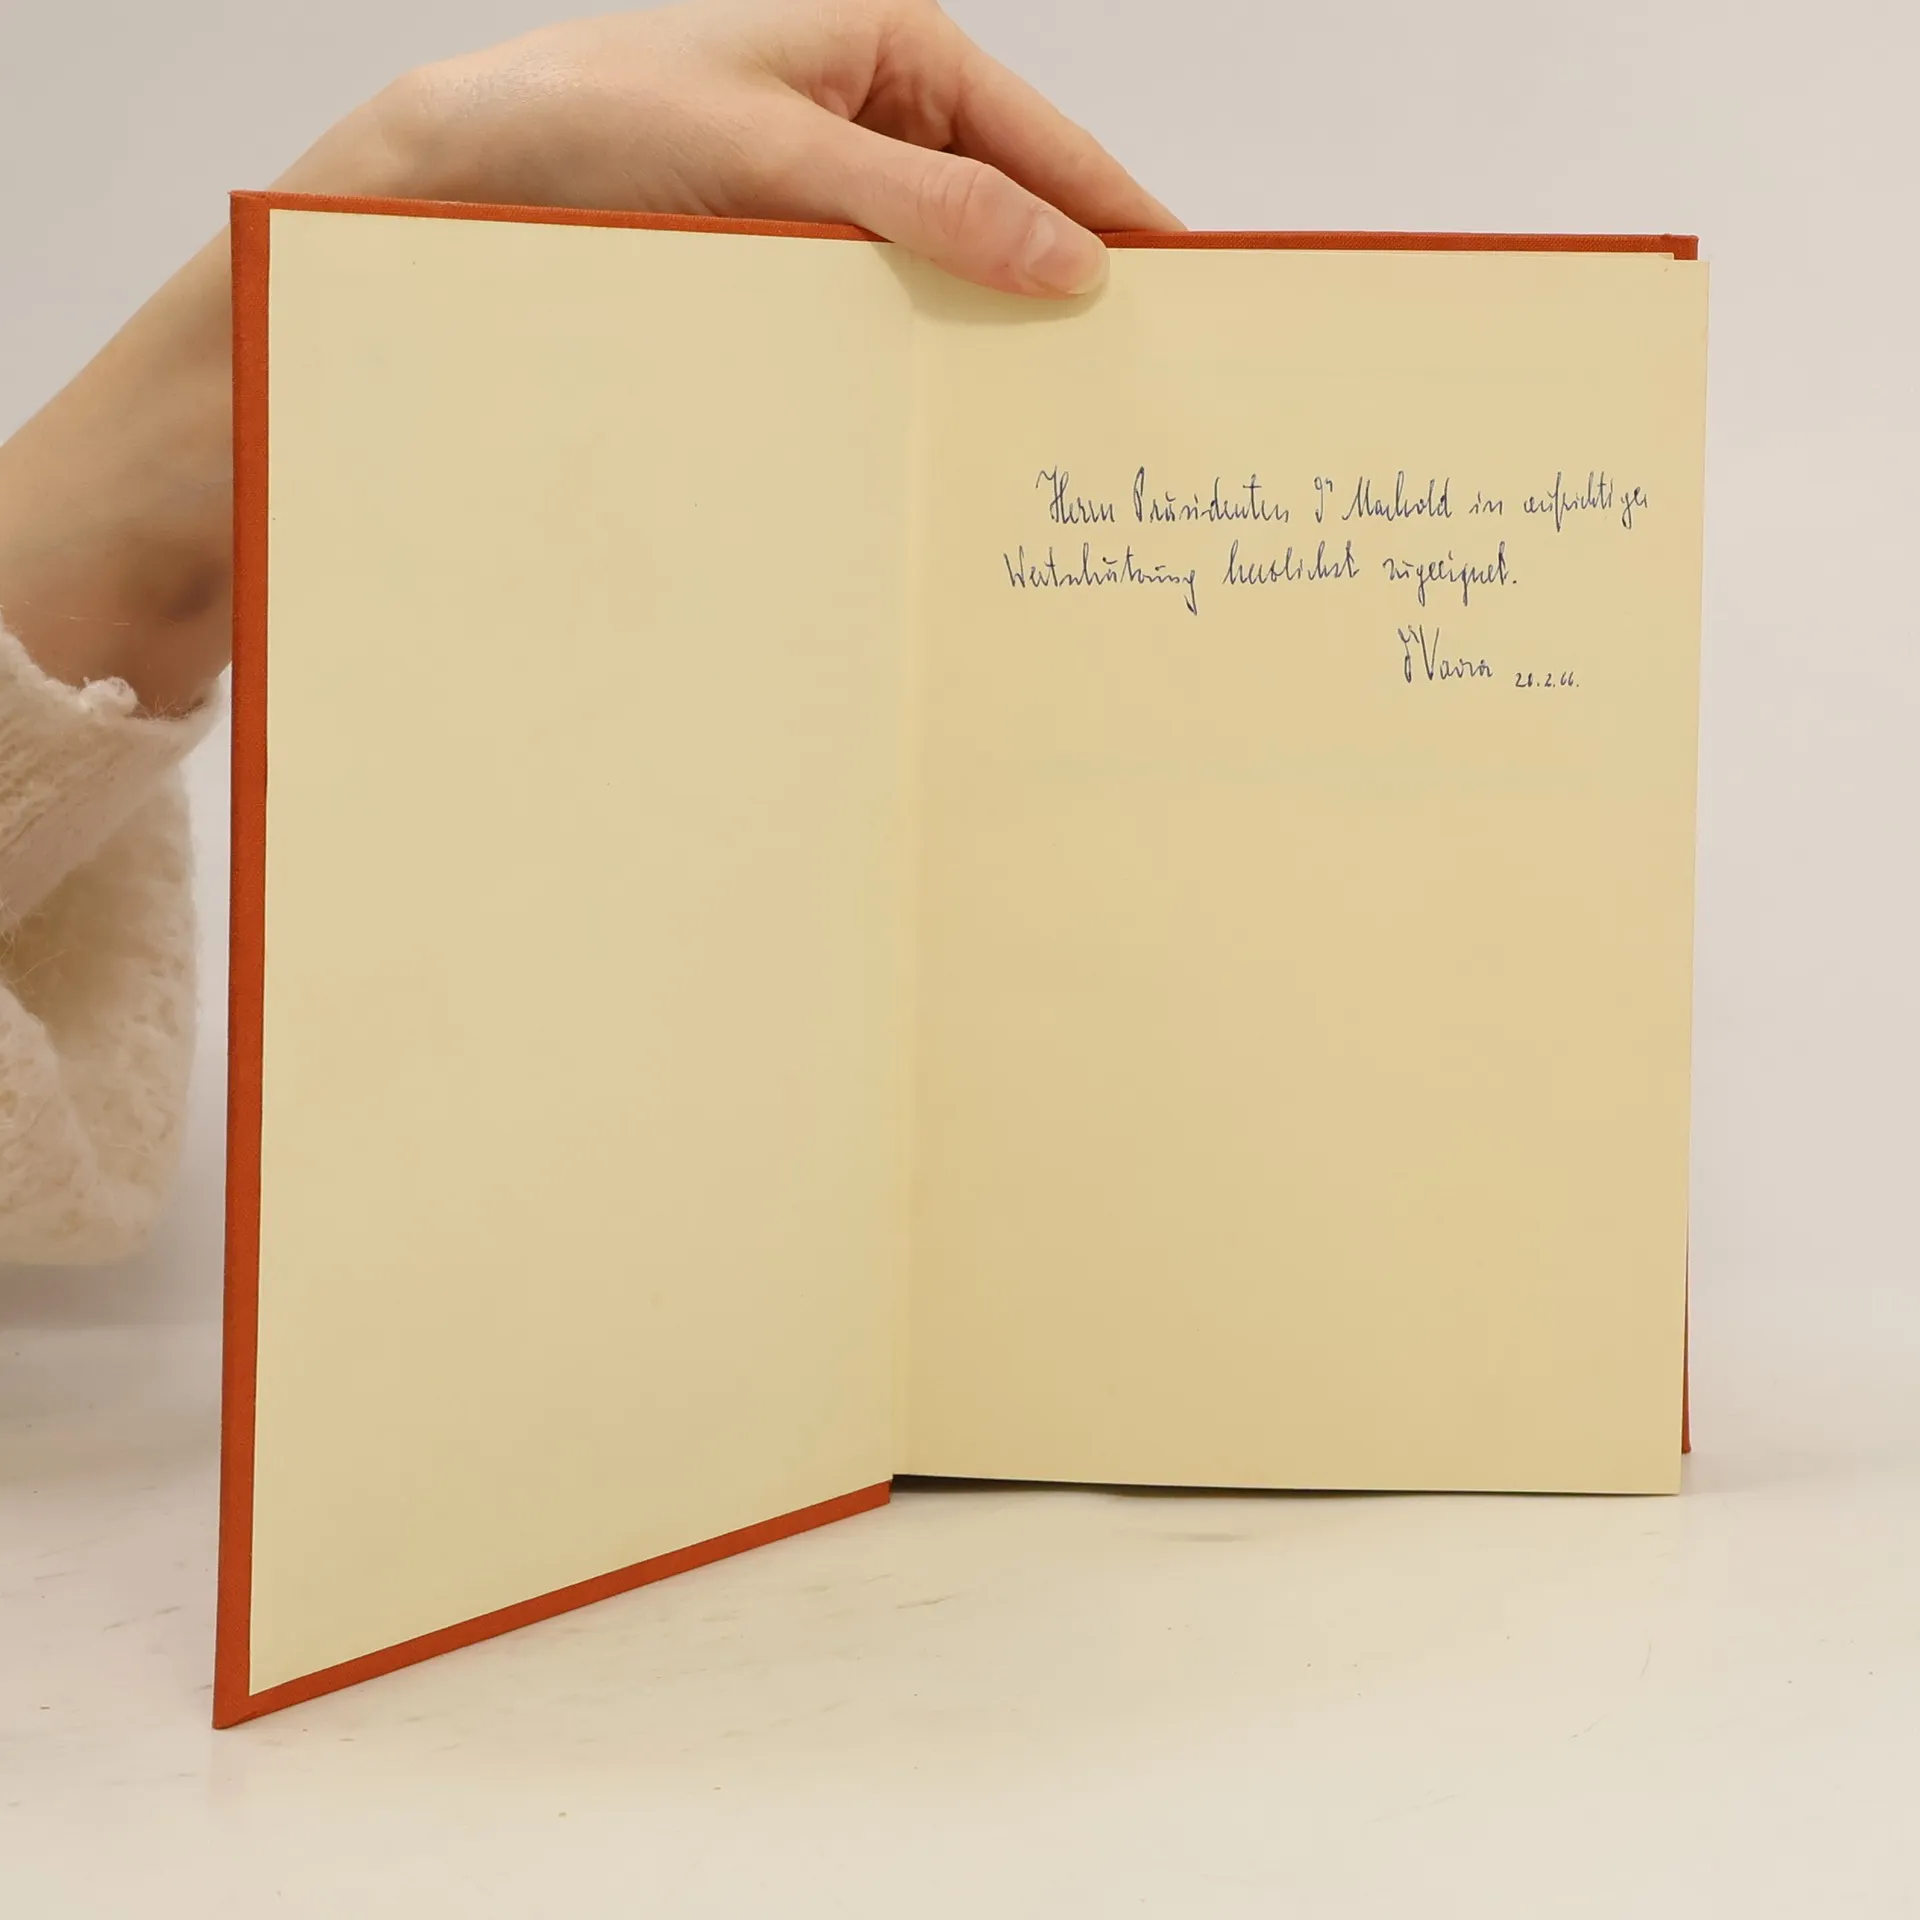 Herrn Präsidenten Dr Machold in aufrichtiger
Wertschätzung herzlichst zugeeignet.
20.2.66.